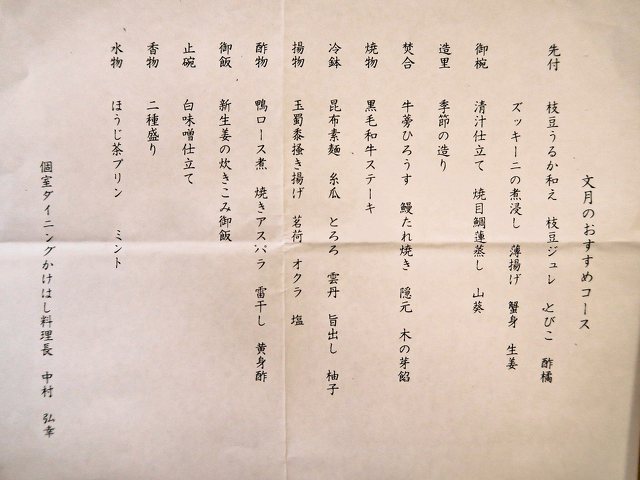 文月のおすすめコース
先付　枝豆うるか和え　枝豆ジュレ　とびこ　酢橘
ズッキーニの煮浸し　薄揚げ　蟹身　生姜
御椀　清汁仕立て　焼目鯛蓮蒸し　山葵
造里　季節の造り
焚合　牛蒡ひろうす　鰻たれ焼き　隠元　木の芽餡
焼物　黒毛和牛ステーキ
冷鉢　昆布素麺　糸瓜　とろろ　雲丹　旨出し　柚子
揚物　玉蜀黍掻き揚げ　茗荷　オクラ　塩
酢物　鴨ロース煮　焼きアスパラ　雷干し　黄身酢
御飯　新生姜の炊きこみ御飯
止碗　白味噌仕立て
香物　二種盛り
水物　ほうじ茶プリン　ミント
個室ダイニングかけはし料理長　中村　弘幸